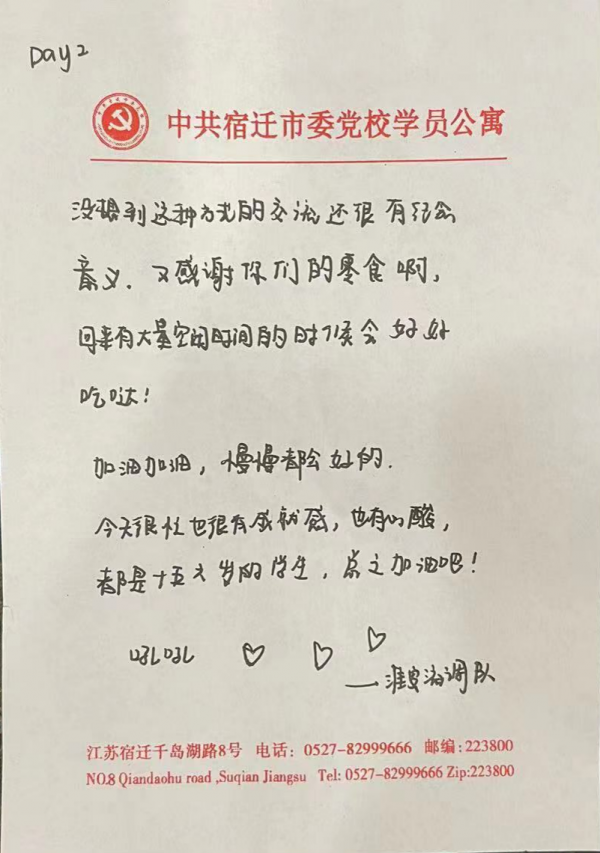 Day 2
中共宿迁市委党校学员公寓
没想到这种方式的交流还很有纪念
意义. 又感谢你们的零食啊,
回来有大量空闲时间的时候会好好
吃哒!
加油加油, 慢慢都会好的.
今天很忙也很有成就感, 也有心酸,
都是十五六岁的学生, 总之加油吧!
——淮安流调队
江苏宿迁千岛湖路8号 电话: 0527-82999666 邮编: 223800
NO.8 Qiandaohu road ,Suqian Jiangsu Tel: 0527-82999666 Zip:223800